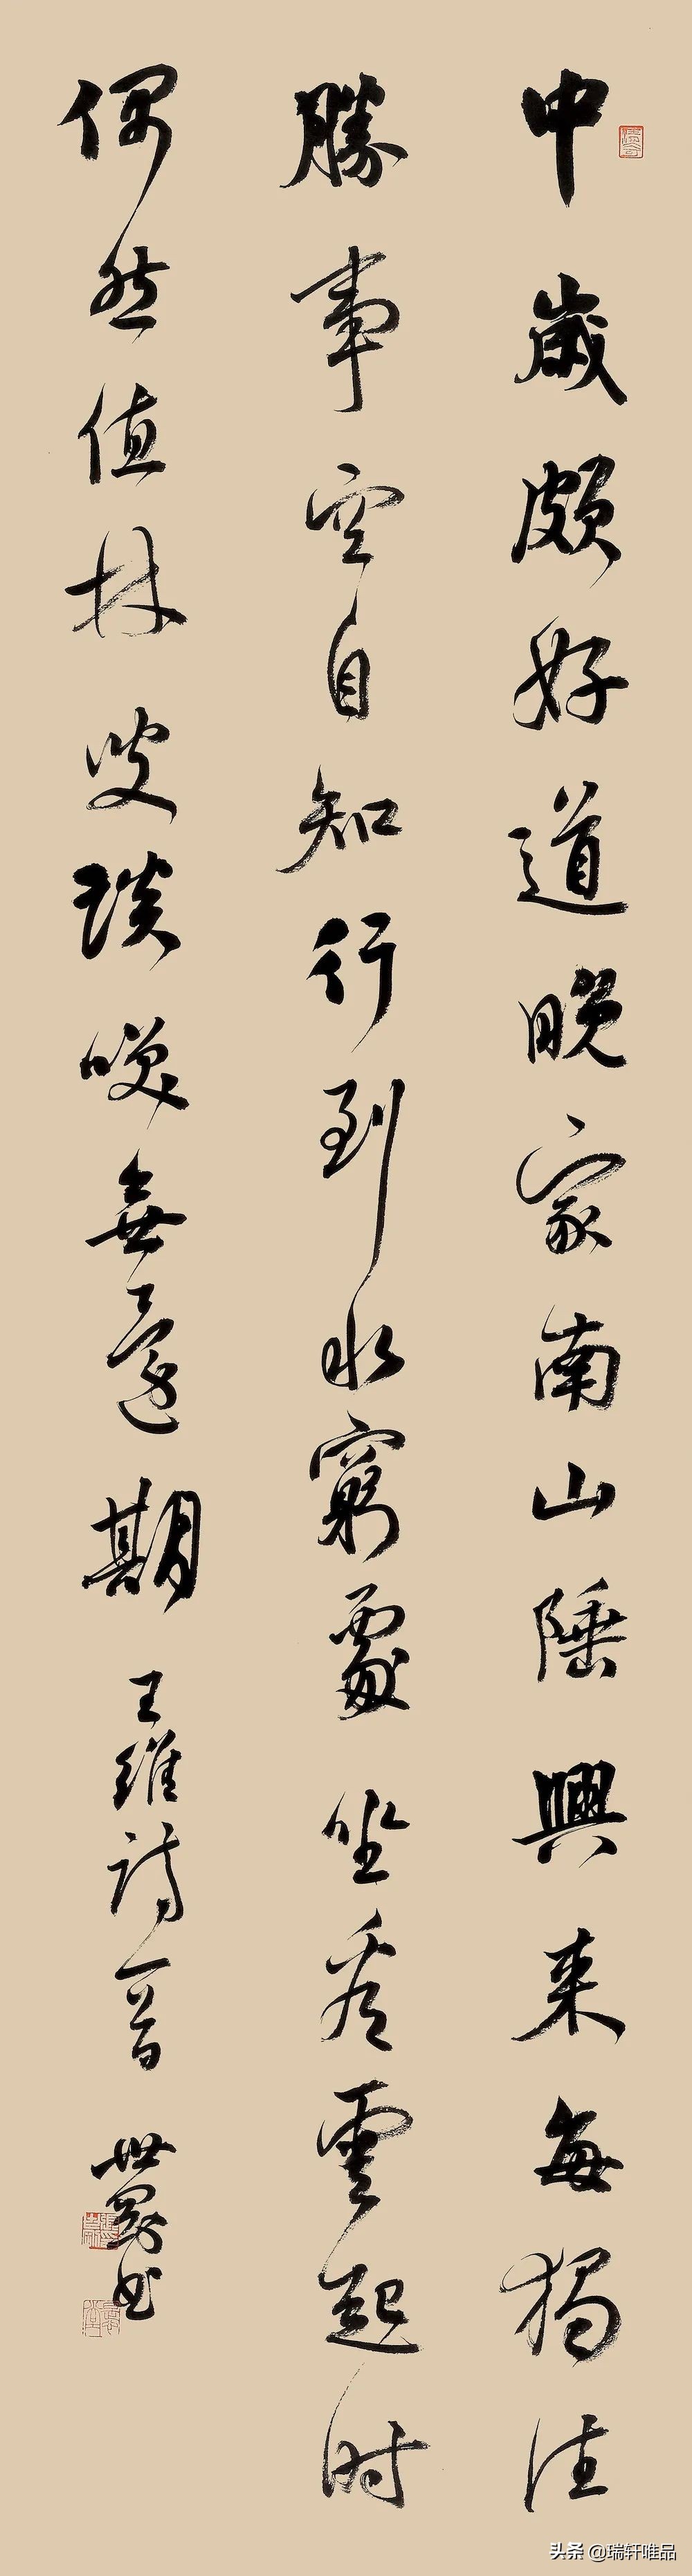 中歲頗好道晚家南山陲興来每獨往
勝事空自知行到水窮處坐看雲起时
偶然值林叟談咲無還期 王維詩一首 世书
头条 @瑞轩唯品